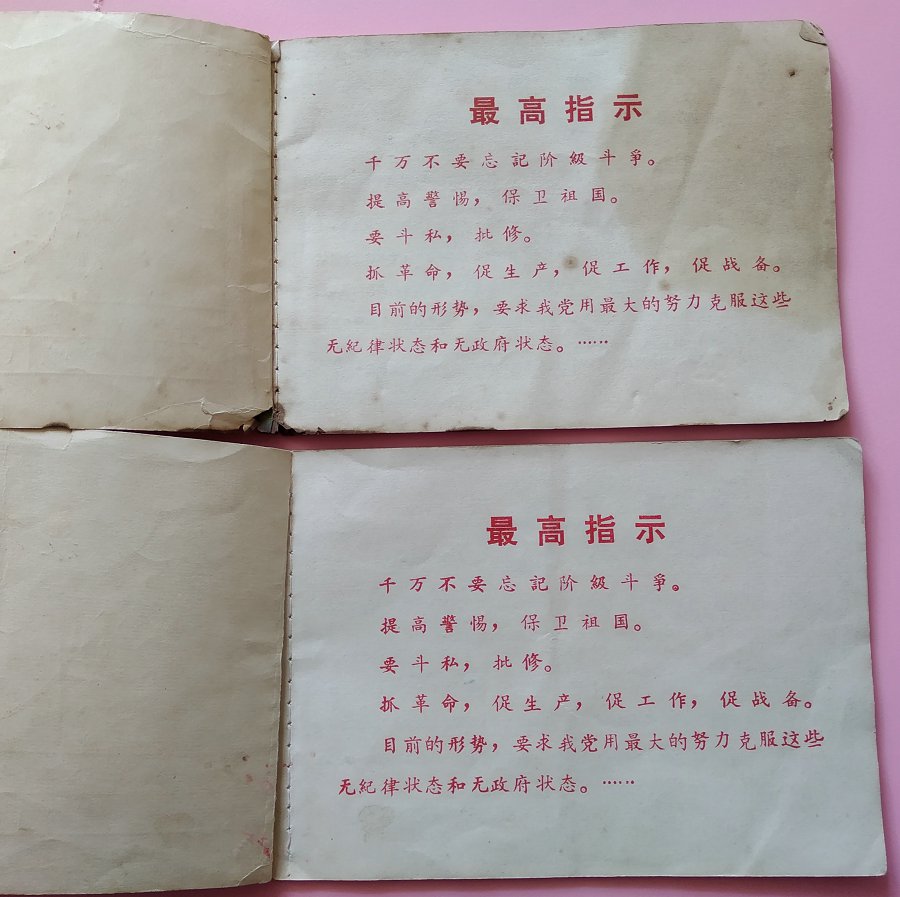 最高指示
千万不要忘記阶級斗爭。
提高警惕，保卫祖国。
要斗私，批修。
抓革命，促生产，促工作，促战备。
目前的形势，要求我党用最大的努力克服这些
无紀律状态和无政府状态。……
最高指示
千万不要忘記阶級斗爭。
提高警惕，保卫祖国。
要斗私，批修。
抓革命，促生产，促工作，促战备。
目前的形势，要求我党用最大的努力克服这些
无紀律状态和无政府状态。……